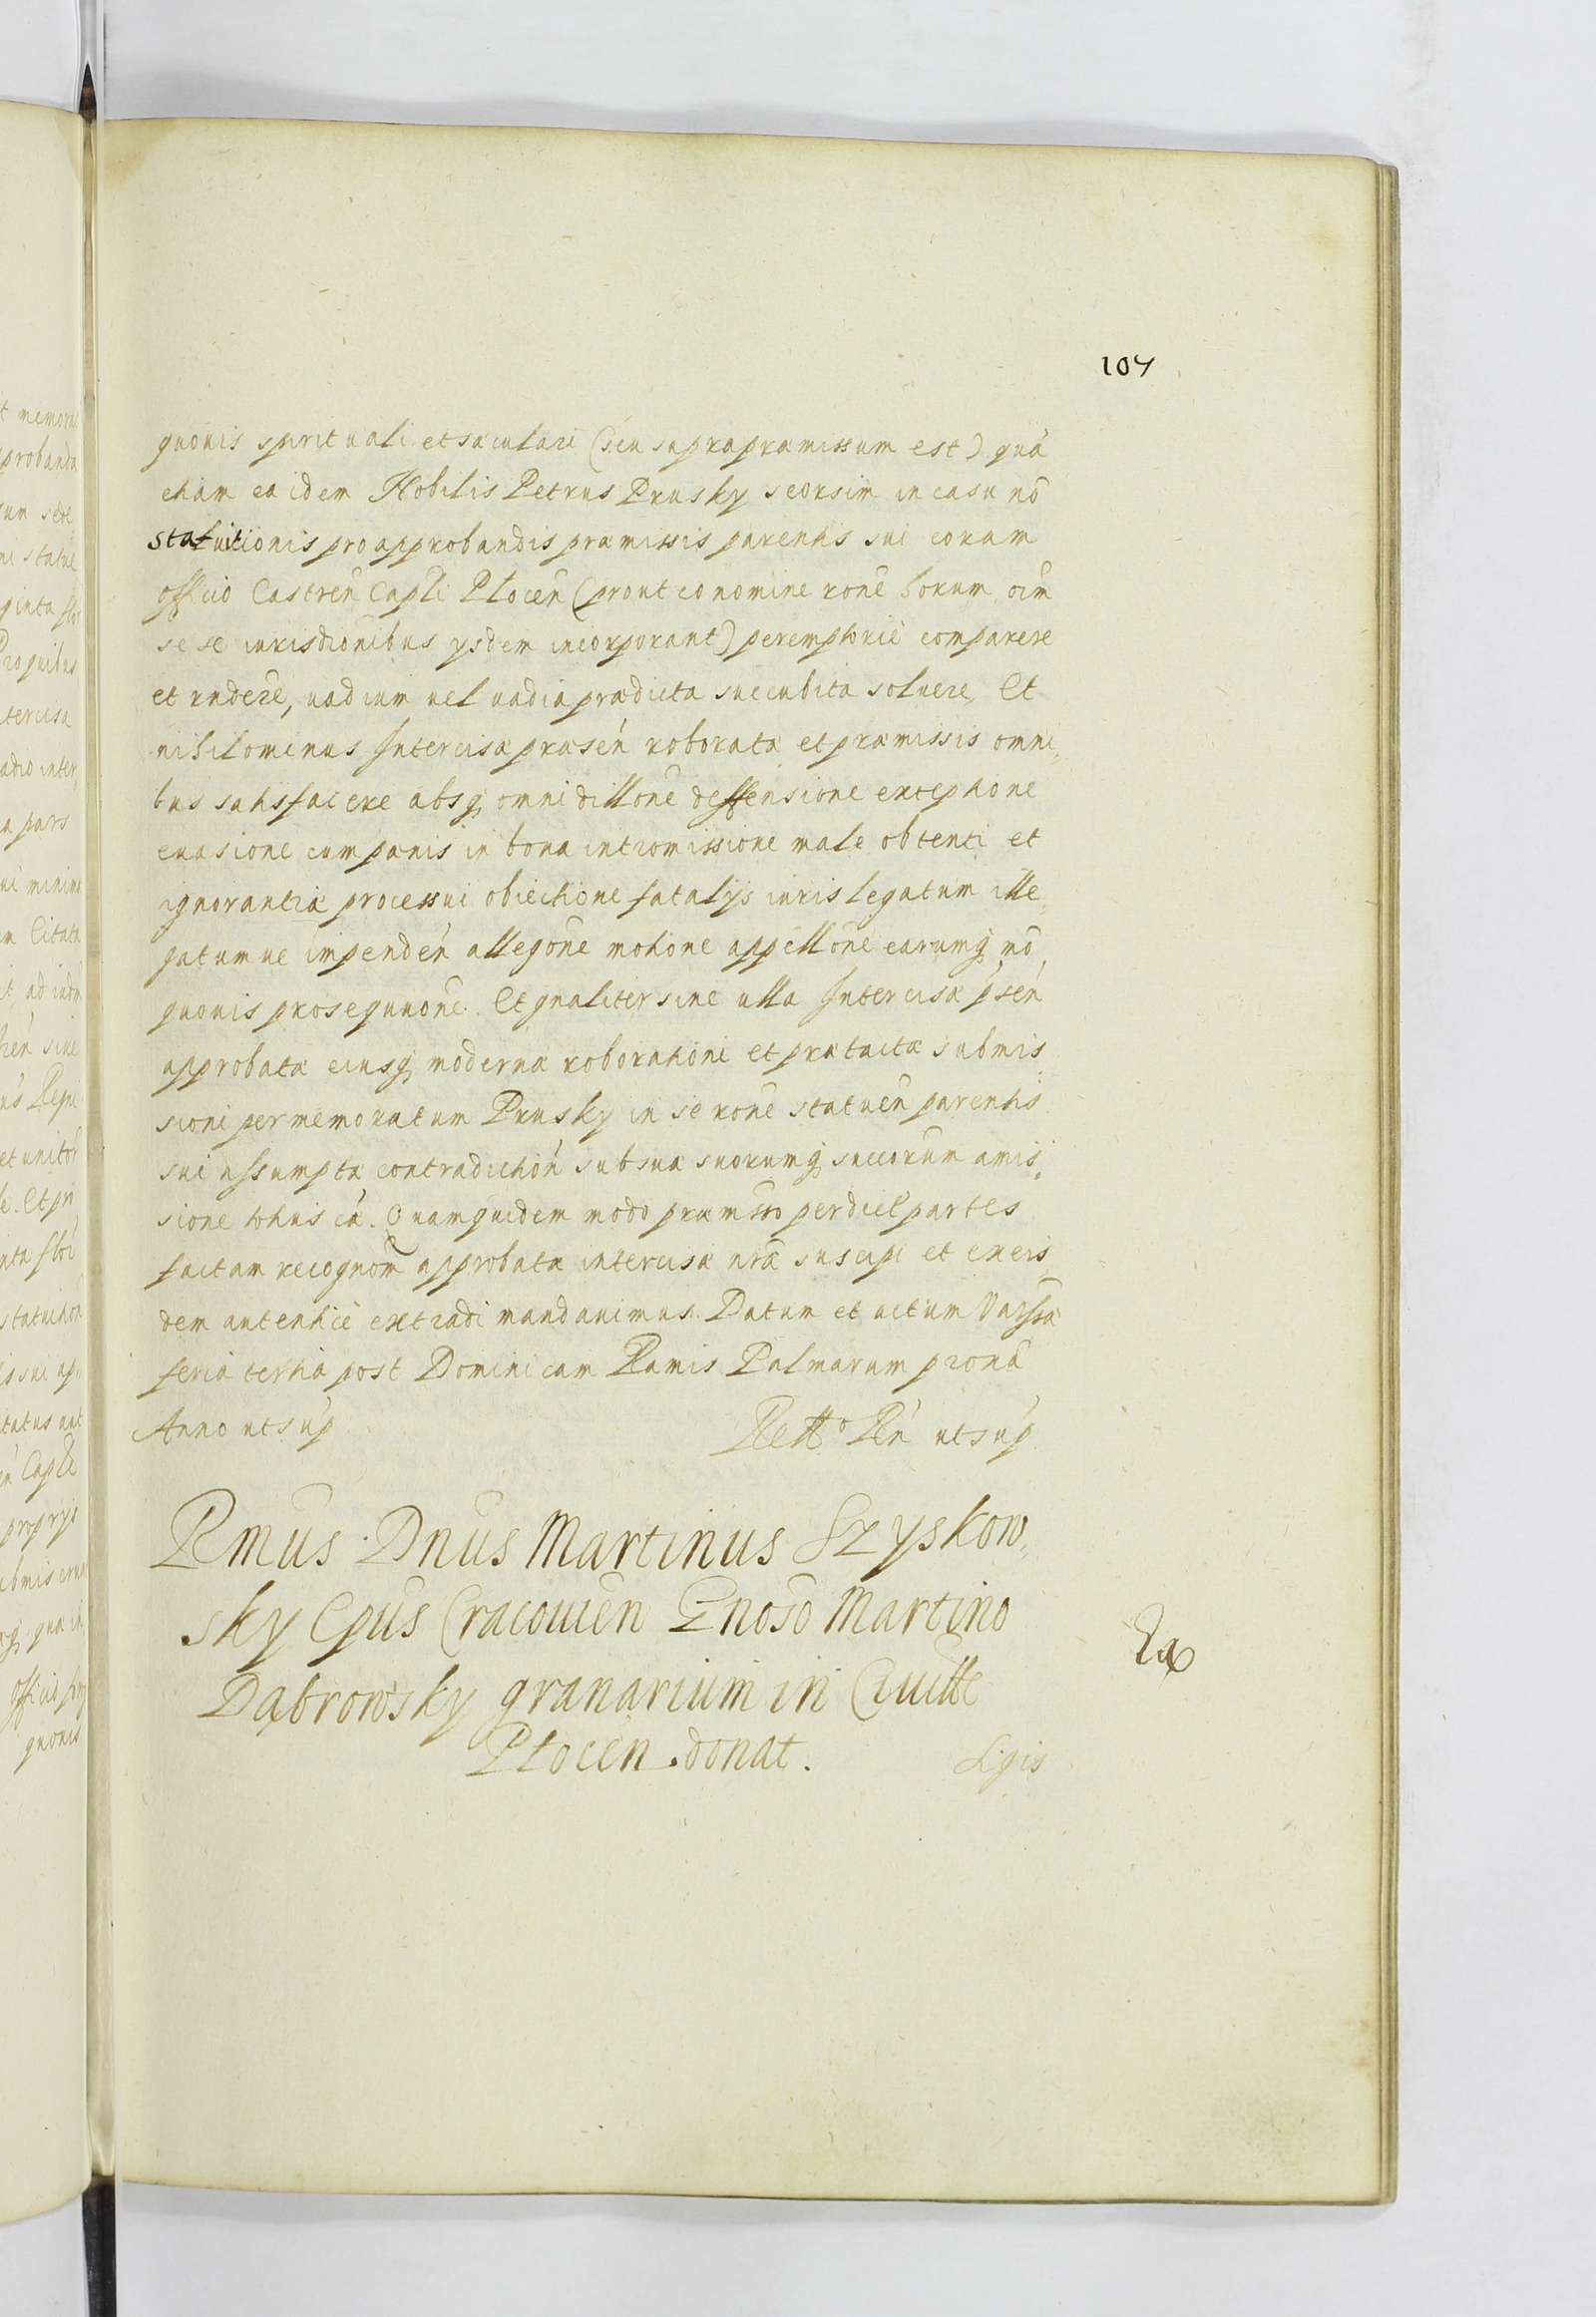 107
quouis spirituali et sæculari (seu supra præmissum est) quā
etiam ea idem Nobilis Petrus Prusky seorsim in casu nō
statuitionis pro approbandis præmissis parentis sui coram
officio Castreñ Capli Plocen̄ (prout eo nomine rōne horum oīm
se se iurisdiōnibus ÿsdem incorporant) peremptoriè comparere
et rñdere, uadium uel uadia prædicta succubita soluere, Et
nihilominus Intercisæ præseń roboratæ et præmissis omni,,
bus satisfacere absq, omni dillōne deffensione exceptione
euasione cum pœnis in bona intromissione male obtenti et
ignorantiæ processui obiectione fatalÿs iuris legatum ille,,
gatumue impendeń allegōne motione appellōne earumq, nō
quouis prosequuōne. Et gnaliter sine ulla Intercisæ pseń
approbatæ eiusq, modernæ roborationi et prætactæ submis,,
sioni per memoratum Prusky in se rōne statueñ parentis
sui assumptæ contradictioń sub suæ suorumq, succorum amis,,
sione totius cā. Quamquidem modo præmisso per dict partes
factam recognōm approbatæ intercisæ nrā suscipi et ex eis,,
dem autenticè extradi mandauimus. Datum et actum Varsₐ
feria tertia post Dominicam Ramis Palmarum pronā
Anno ut sup
Rett° Rń ut sup
Rmus Dnus Martinus Szyskow,,
sky Epūs Cracouień Gnoso Martino
Dąbrowsky granarium in Ciuitte
Plocen̄ donat.
Sigis